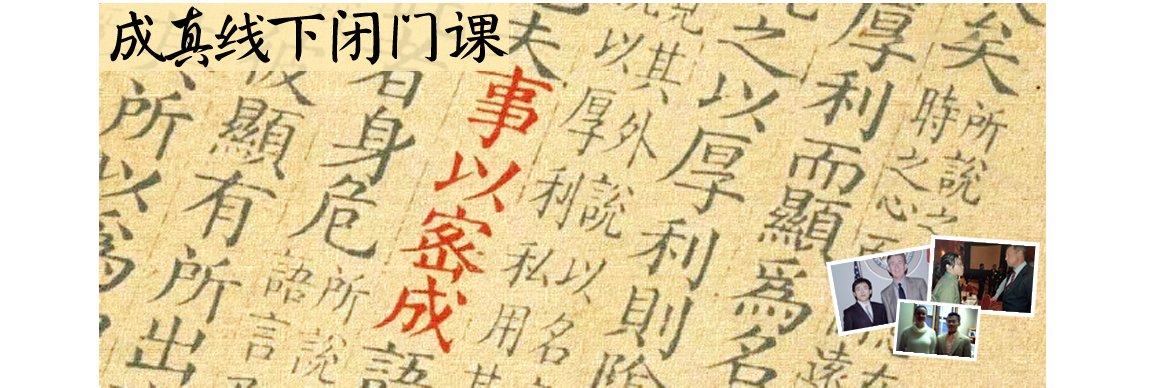 成真线下闭门课
矣
所說之
時之心
厚利而顯爲名
之以厚利則陰
說其外說以名
以厚利私用其
夫事以密成語
者身危
所說
語言
彼顯有所出
所以爲